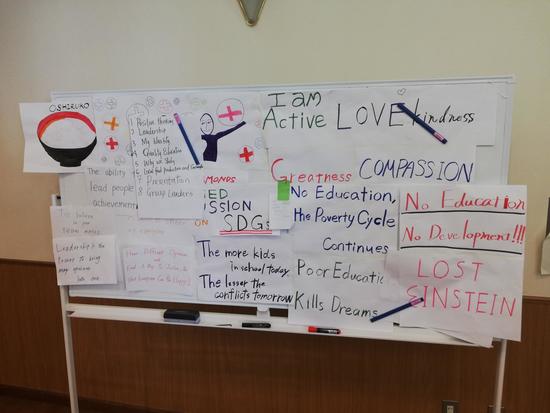 OSHIRUKO
1 Positive thinking
2 Leadership
3 My Identity
4 Quality Education
5 Why we Study
6 Local food production and
7 Presentation
8 Group Leaders
I am
Active
LOVE
kindness
Greatness
COMPASSION
The ability
lead people
achievement
SDGs
ON
No Education,
the Poverty Cycle
Continues
No Education
No Development!!!
believe in
your team mates
Leadership is the
Power to bring
many opinions
into one.
Have Different Opinion
and
that Everyone Can Be Happy!
The more kids
in school today
The lesser the
conflicts tomorrow
Poor Educatio
Kills Dreams
LOST
EINSTEIN